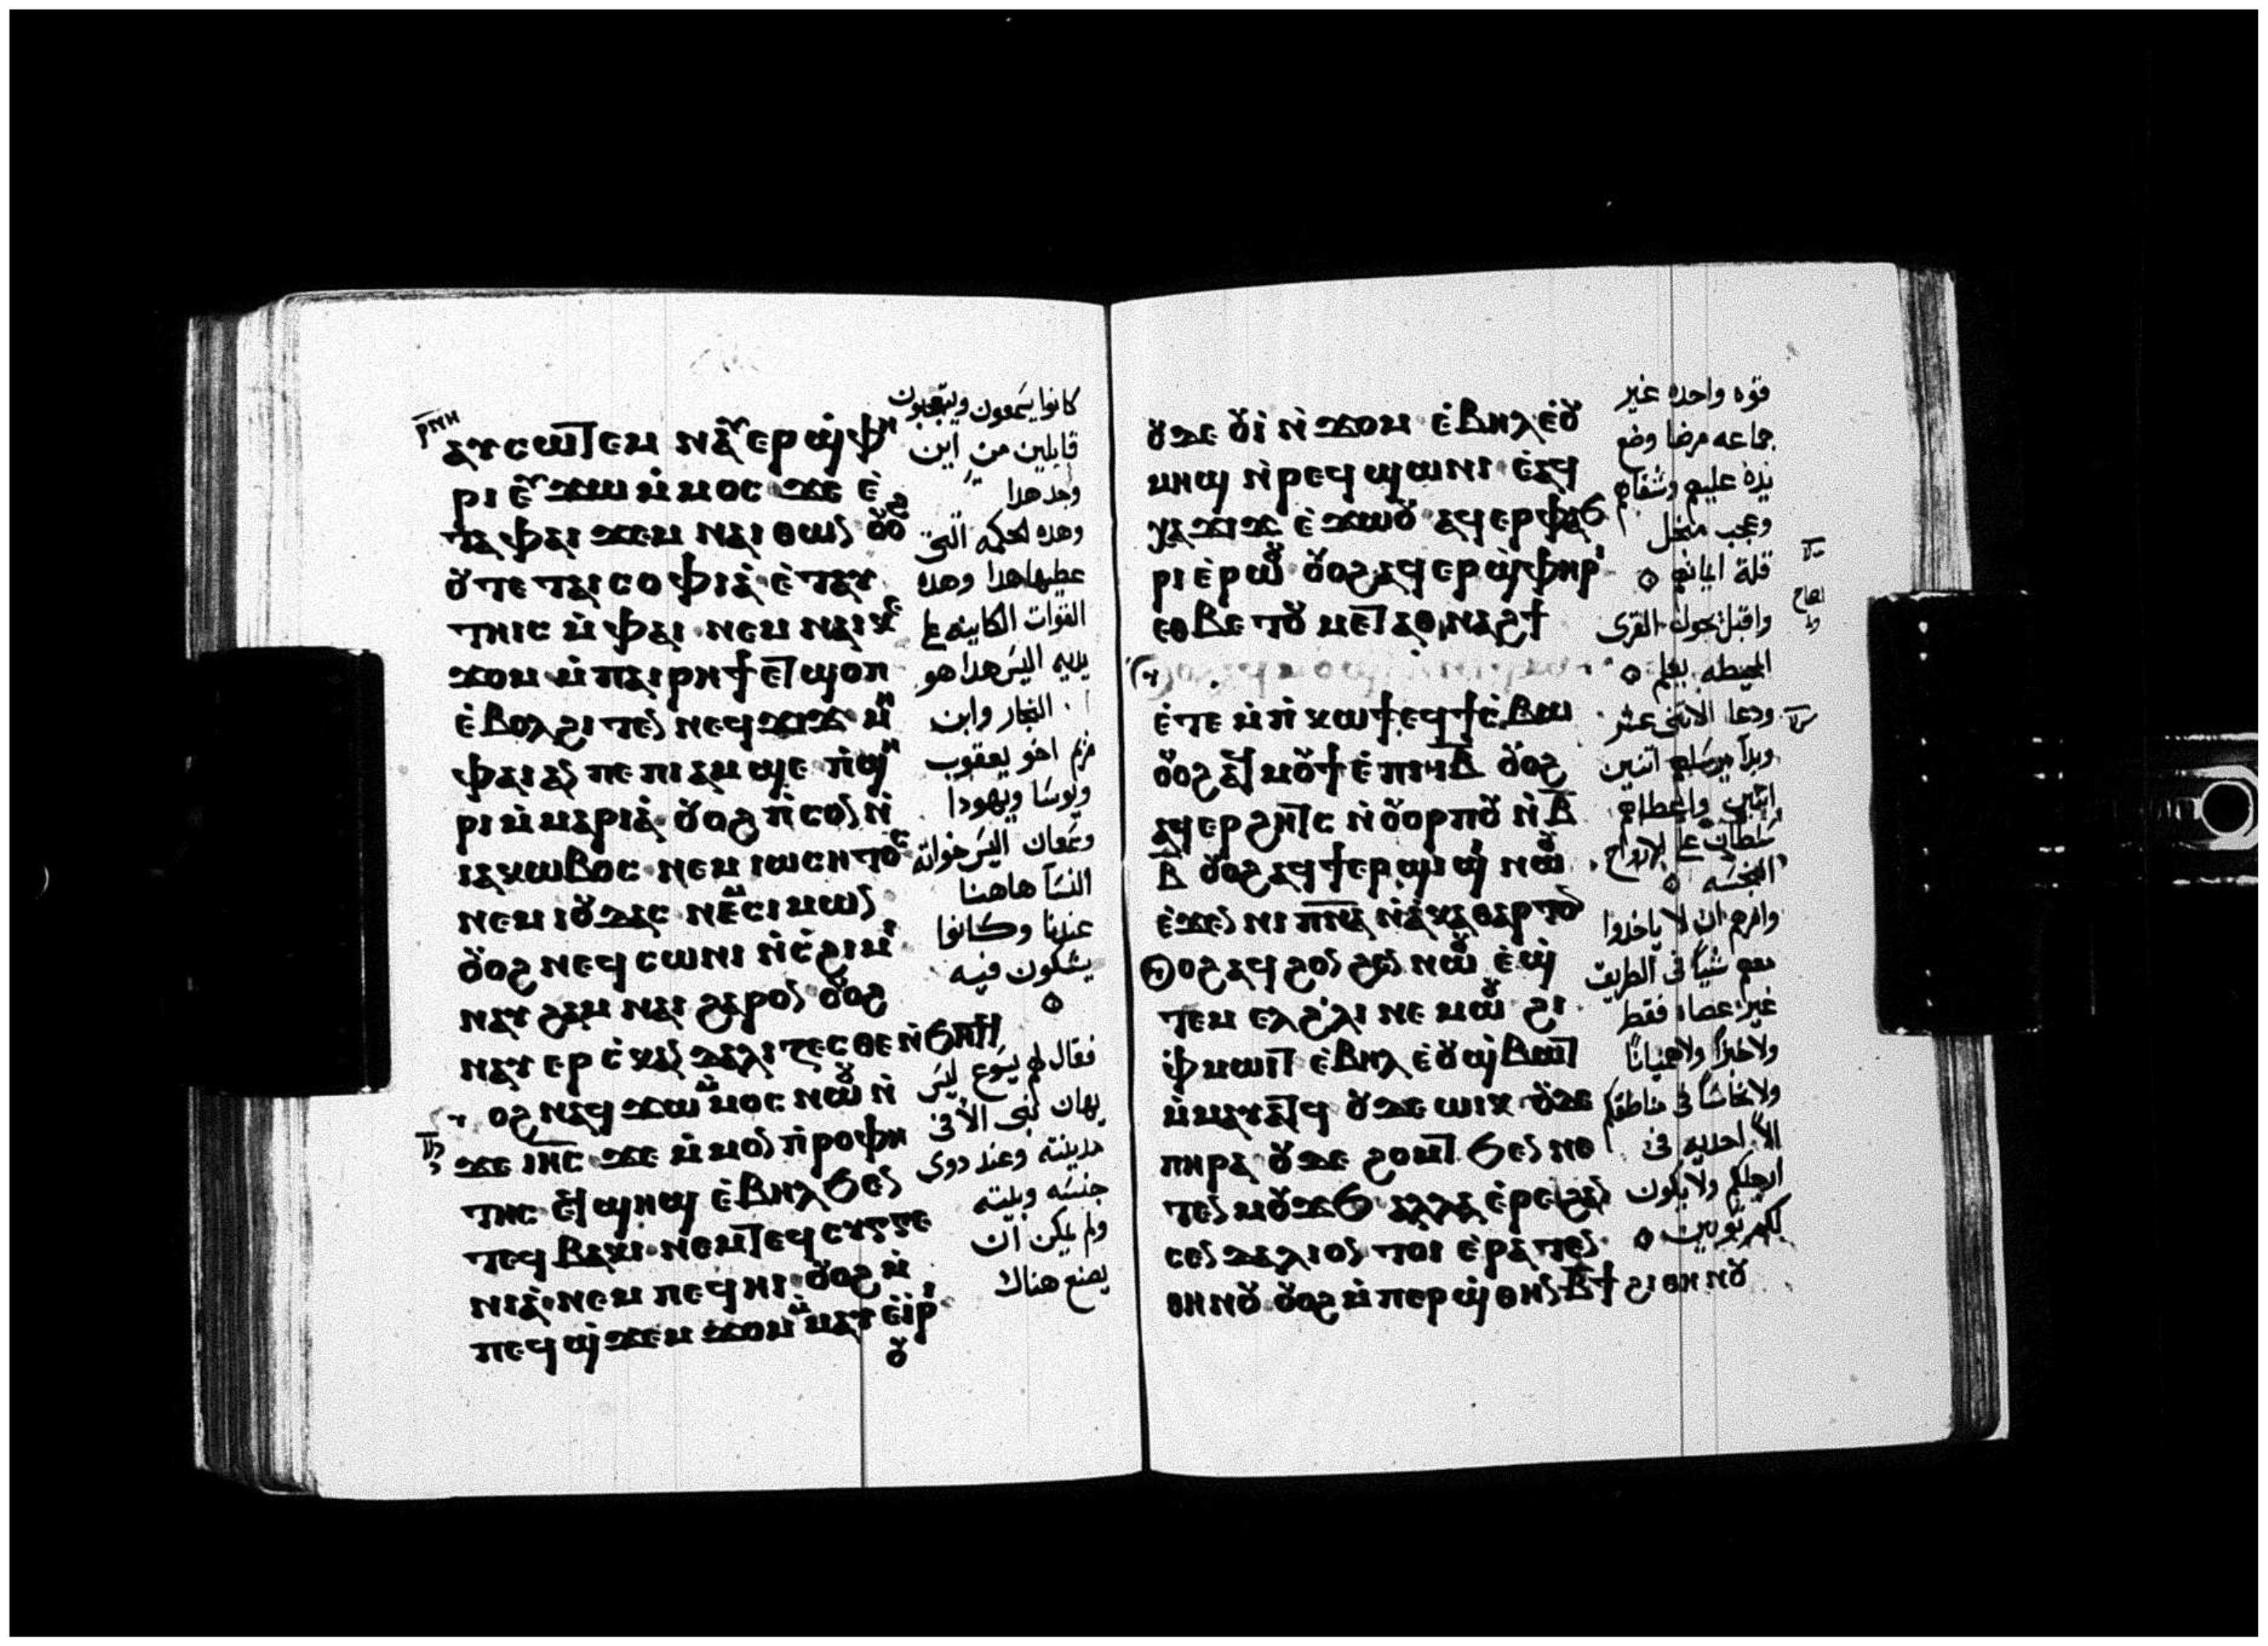 ⲣⲛⲏ
ⲁⲩⲥⲱⲧⲉⲙ ⲛⲁⲩⲉⲣϣⲫⲏ
ⲣⲓ ⲉⲩϫⲱ ⲙ̀ⲙⲟⲥ ϫⲉ ⲉ̀
ⲧⲁ ⲫⲁⲓ ϫⲉⲙ ⲛⲁⲓ ⲑⲱⲛ ⲟⲩⲟϩ
ⲟⲩ ⲧⲉ ⲧⲁⲓ ⲥⲟⲫⲓⲁ̀ ⲉ̀ⲧⲁⲩ
ⲧⲏⲓⲥ ⲙ̀ⲫⲁⲓ ⲛⲉⲙ ⲛⲁⲓⲕⲉ
ϫⲟⲙ ⲙ̀ⲡⲁⲓⲣⲏϯ ⲉⲧϣⲟⲡ
ⲉ̀ⲃⲟⲗϩⲓⲧⲉⲛ ⲛⲉϥϫⲓϫ ⲙⲏ
ⲫⲁⲓ ⲁⲛ ⲡⲉ ⲡⲓⲁⲙϣⲉ ⲡ̀ϣⲏ
ⲣⲓ ⲙ̀ⲙⲁⲣⲓⲁ̀ ⲟⲩⲟϩ ⲡ̀ⲥⲟⲛ ⲛ̀
ⲓⲁⲕⲱⲃⲟⲥ ⲛⲉⲙ ⲓⲱⲥⲏⲧⲟⲥ
ⲛⲉⲙ ⲓⲟⲩⲇⲁⲥ ⲛⲉⲙ ⲥⲓⲙⲱⲛ
ⲟⲩⲟϩ ⲛⲉϥⲥⲱⲛⲓ ⲛ̀ⲥ̀ϩⲓⲙⲓ
ⲛⲁⲩ ϩⲁⲙ ⲛⲁⲓ ϩⲁⲣⲟⲛ ⲟⲩⲟϩ
ⲛⲁⲩⲉⲣⲥ̀ⲕⲁⲛⲇⲁⲗⲓⲍⲉⲥⲑⲉ ⲛ̀ϧⲏⲧϥ
ⲟⲩⲟϩ ⲛⲁϥϫⲱ ⲙⲙⲟⲥ ⲛⲱⲟⲩ ⲛ̀
ϫⲉ ⲓⲏⲥ ϫⲉ ⲙ̀ⲙⲟⲛ ⲡ̀ⲣⲟⲫⲏ
ⲧⲏⲥ ⲉϥϣⲏϣ ⲉ̀ⲃⲏⲗ ϧⲉⲛ
ⲧⲉϥ ⲃⲁⲕⲓ ⲛⲉⲙ ⲧⲉϥ ⲥⲩⲅⲅⲉ
ⲛⲓⲁ̀ ⲛⲉⲙ ⲡⲉϥⲏⲓ ⲟⲩⲟϩ ⲙ̀
ⲡⲉϥϣ̀ϫⲉⲙ ϫⲟⲙ ⲙ̀ⲙⲁⲩ ⲉ̀ⲓⲣⲓ
ⲟⲩ
كانوا يسمعون ويتعجبون
قايلين من اين
وجد هدا
وهده الحكمه التى
عطيها هدا وهده
القوات الكاينه على
يديه اليس هدا هو
النجار وابن
مريم اخو يعقوب
ويوسا ويهودا
وسمعان اليس خواته
النسآ هاهنا
عندنا وكانوا
يشكون فيه
فقال لهم يسوع ليس
يهان نبى الا فى
مدينته وعند دوى
جنسه وبيته
ولم يمكن ان
يصنع هناك
ⲟⲩⲇⲉ ⲟⲩⲓ̀ ⲛ̀ϫⲟⲙ ⲉ̀ⲃⲏⲗ ⲉ̀ⲟⲩ
ⲙⲏϣ ⲛ̀ⲣⲉϥϣⲱⲛⲓ ⲉ̀ⲁϥ
ⲭⲁ ϫⲓϫ ⲉ̀ϫⲱⲟⲩ ⲁϥⲉⲣⲫⲁϧ
ⲣⲓ ⲉ̀ⲣⲱⲟⲩ ⲟⲩⲟϩ ⲁϥⲉⲣϣ̀ⲫⲏⲣⲓ
ⲉⲑⲃⲉ ⲧⲟⲩⲙⲉⲧⲁⲑⲛⲁϩϯ
ⲉ̀ⲧⲉ ⲙ̀ⲡ̀ⲕⲱϯ ⲉϥϯⲥ̀ⲃⲱ
ⲟⲩⲟϩ ⲁϥⲙⲟⲩϯ ⲉ̀ⲡⲓⲓ̅ⲃ̅ ⲟⲩⲟϩ
ⲁϥⲉⲣϩⲏⲧⲥ ⲛ̀ⲟⲩⲟⲣⲡⲟⲩ ⲛ̀ⲃ̅
ⲃ̅ ⲟⲩⲟϩ ⲁϥϯⲉⲣϣⲓϣⲓ ⲛⲱⲟⲩ
ⲉ̀ϫⲉⲛ ⲛⲓⲡ̅ⲛ̅ⲁ̅ ⲛ̀ⲁ̀ⲕⲁⲑⲁⲣⲧⲟⲛ
ⲟⲩⲟϩ ⲁϥϩⲟⲛϩⲉⲛ ⲛⲱⲟⲩ ⲉ̀ϣ̀
ⲧⲉⲙ ⲉⲗ ϩ̀ⲗⲓ ⲛⲉⲙⲱⲟⲩ ϩⲓ
ⲫ̀ⲙⲱⲓⲧ ⲉ̀ⲃⲏⲗ ⲉ̀ⲟⲩϣ̀ⲃⲱⲧ
ⲙ̀ⲙⲁⲩⲁⲧϥ ⲟⲩⲇⲉ ⲱⲓⲕ ⲟⲩⲇⲉ
ⲡⲏⲣⲁ ⲟⲩⲇⲉ ϩⲟⲙⲧ ϧⲉⲛ ⲛⲉ
ⲧⲉⲛⲙⲟⲩϫϧ ⲁⲗⲗⲁ ⲉ̀ⲣⲉ ϩⲁⲛ
ⲥⲉⲛⲇⲁⲗⲓⲟⲛ ⲧⲟⲓ ⲉ̀ⲣⲁⲧⲉⲛ
ⲑⲏⲛⲟⲩ ⲟⲩⲟϩ ⲙ̀ⲡⲉⲣϣ̀ⲑⲏⲛ ⲃ̅ϯ ϩⲓⲑⲏⲛⲟⲩ
قوه واحده غير
جماعه مرضا وضع
يده عليهم وشفاهم
وعجب من اجل
قلة ايمانهم
واقبل نحول القرى
المحيطه يعلم
ودعا الاتنى عشر
وبدآ يرسلهم اتنين
اتنين واعطاهم
سلطان على الارواح
النجسه
وامرهم ان لا ياخدوا
معهم شياً فى الطريق
غير عصاه فقط
ولا خبزاً ولا هميانًا
ولا نحاسًا فى مناطقكم
الا احديه فى
ارجلكم ولا يكون
لكم توبين